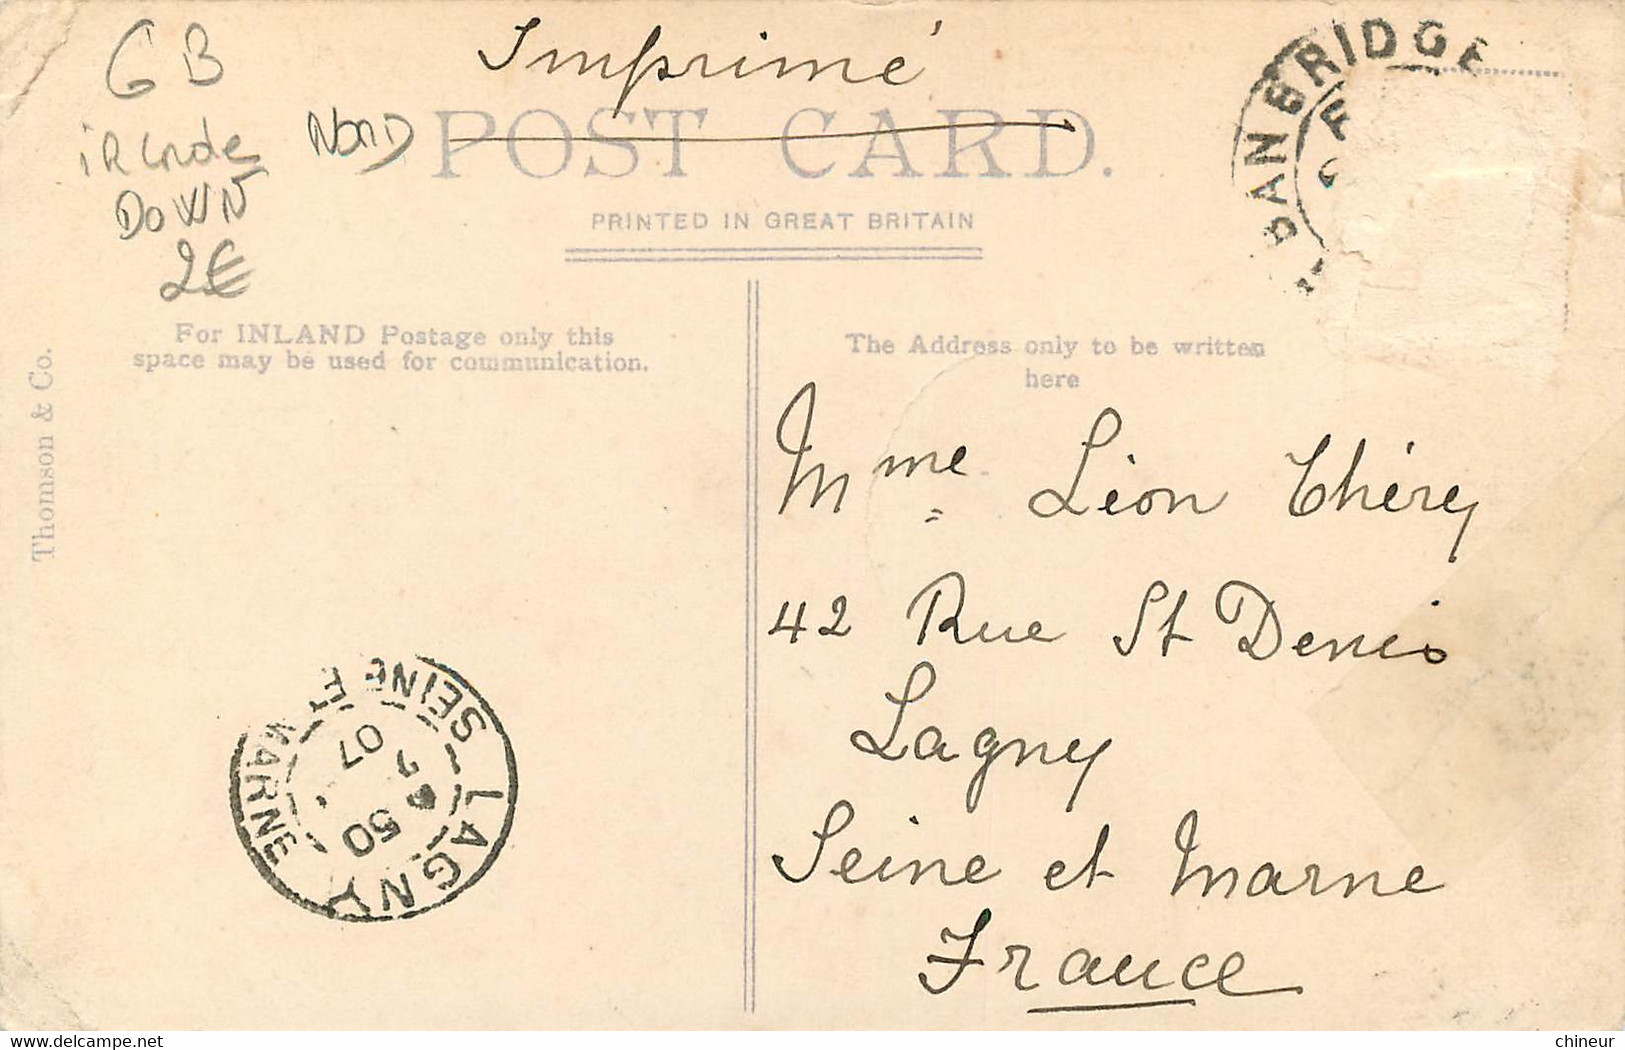 Imprimé
GB
iRlnde NoRD
DOWN
2€
POST CARD.
PRINTED IN GREAT BRITAIN
BANBRIDGE
For INLAND Postage only this
space may be used for communication.
The Address only to be written
here
Thomson & Co.
Mme Léon Thérey
42 Rue St Denis
Lagny
Seine et Marne
France
LAGNY
SEINE ET MARNE
50
07
delcampe.net
chineur